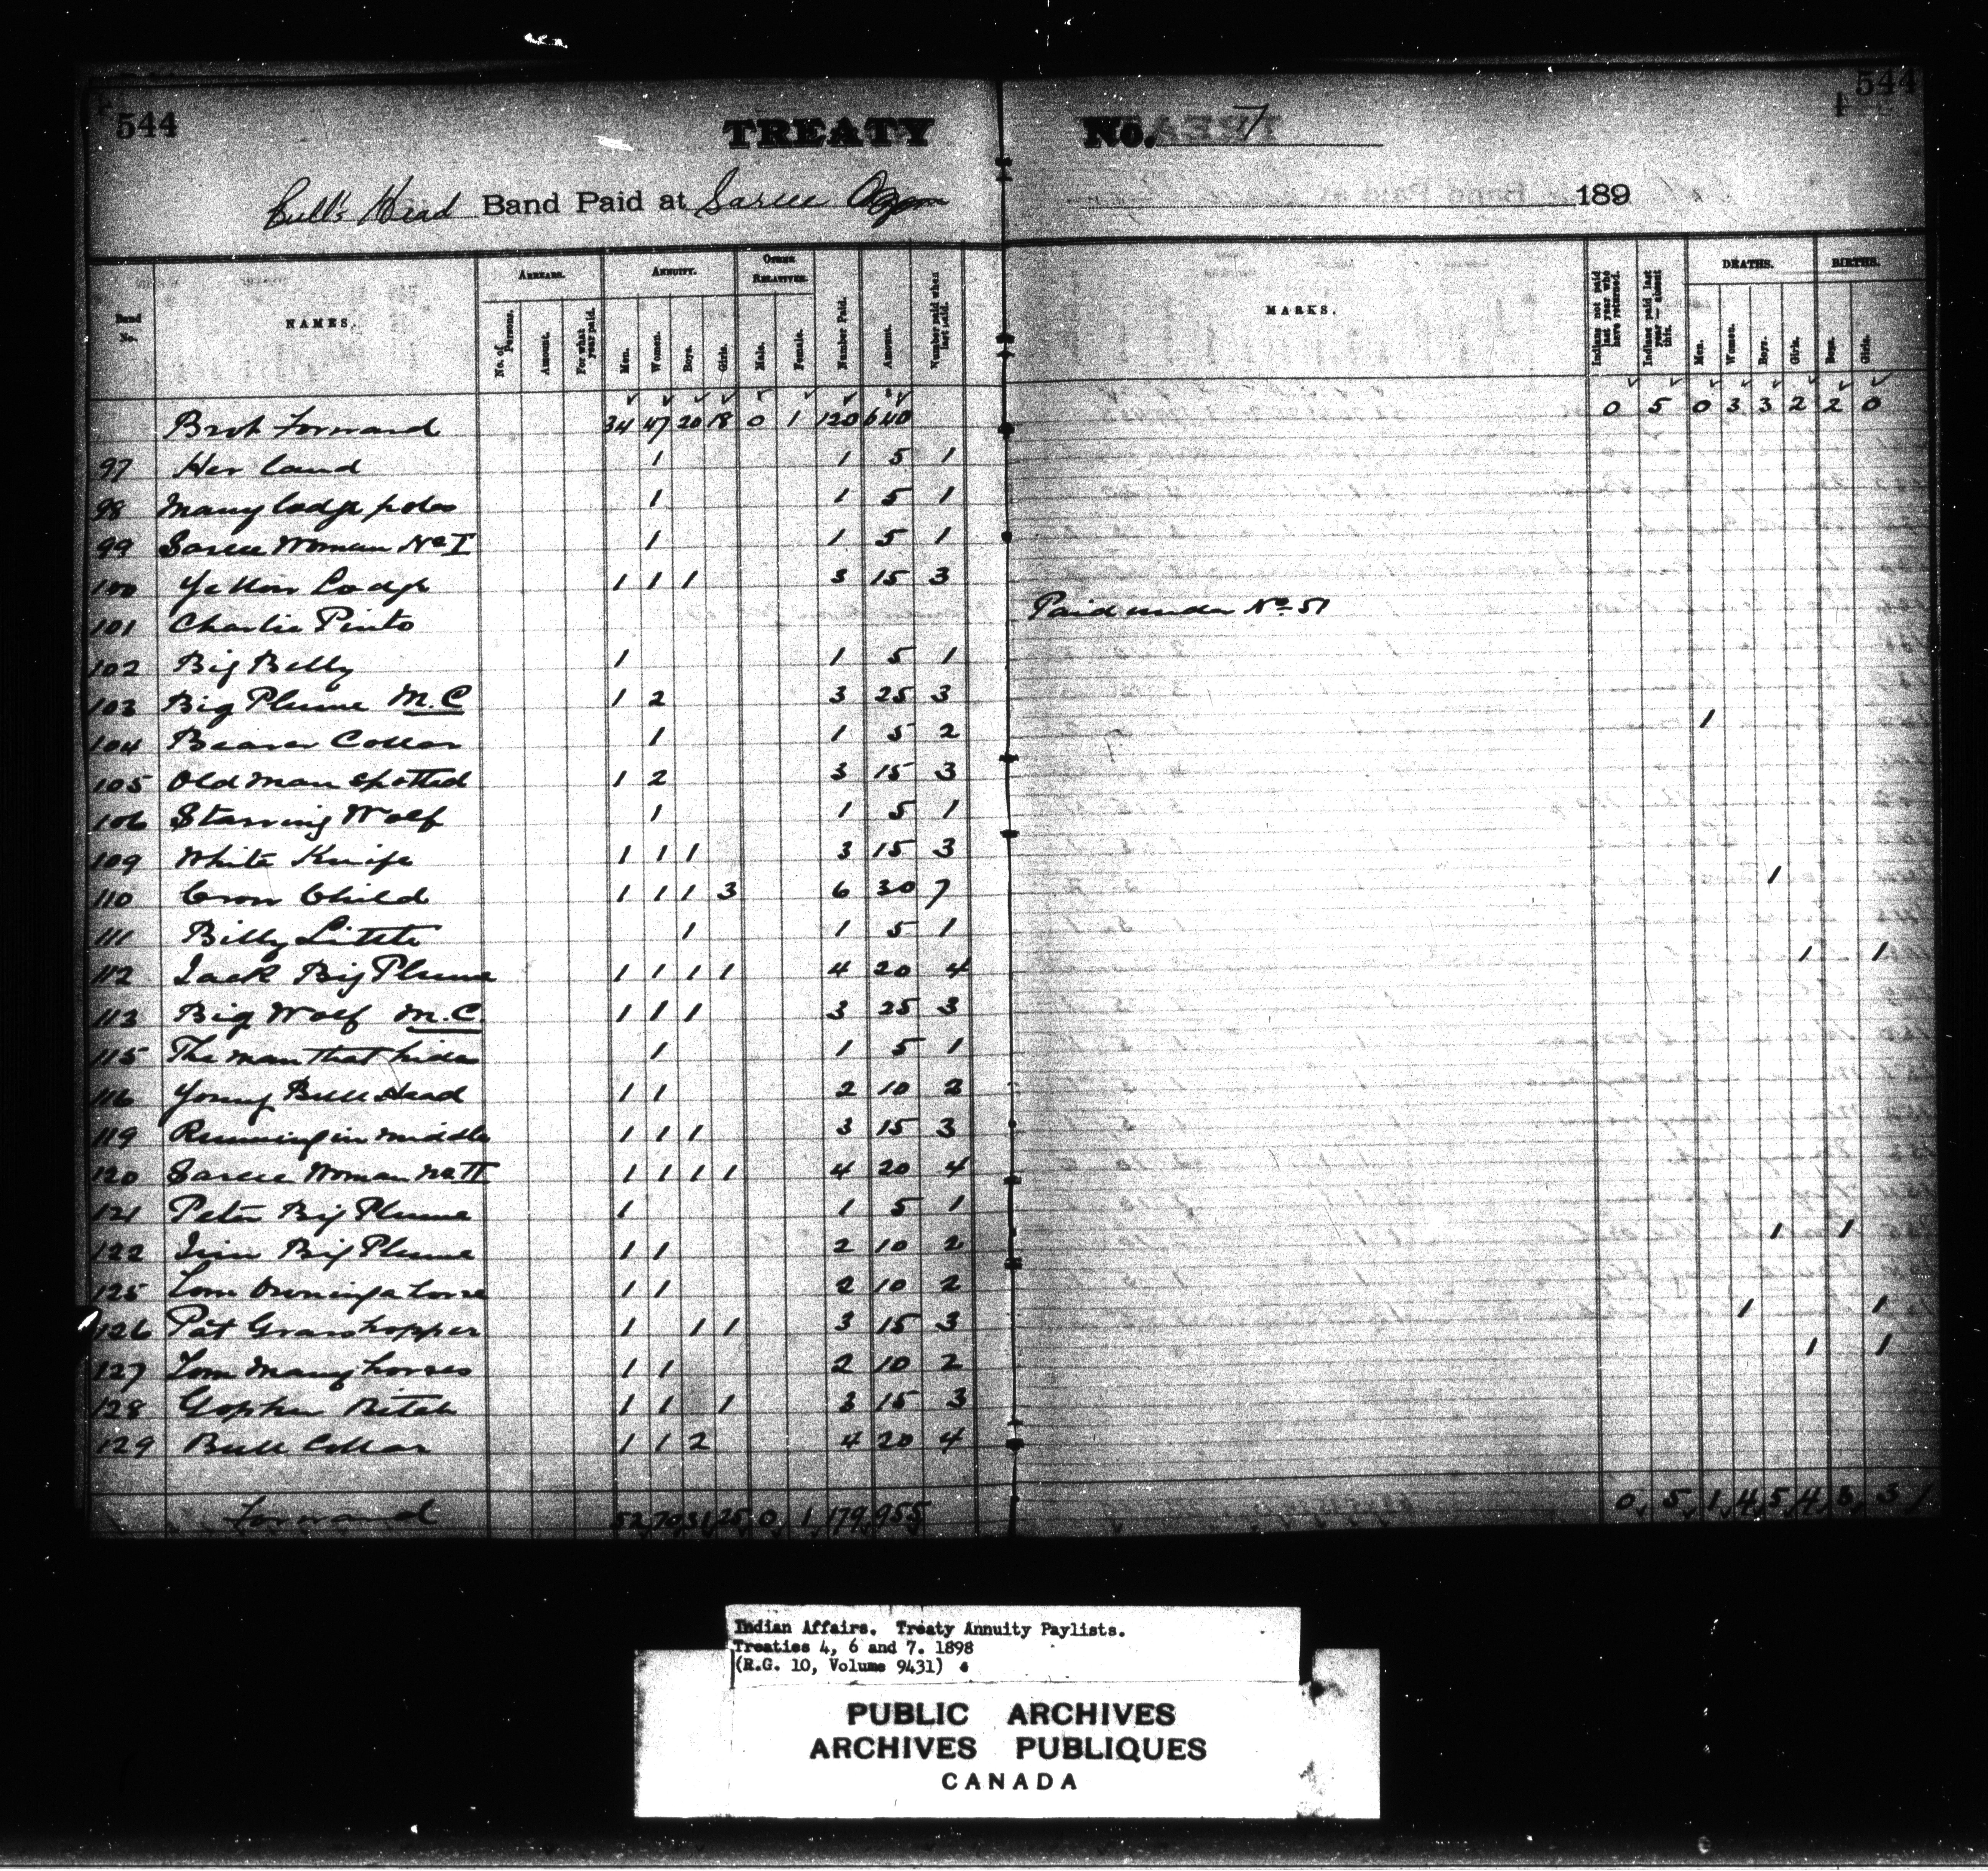 544
544
TREATY No. 7
Bull's Head Band Paid at Sarcee 189
Band No.
NAMES.
ARREARS.
No. of Persons.
Amount.
For what year paid.
ANNUITY.
Men.
Women.
Boys.
Girls.
OTHER RELATIVES.
Male.
Female.
Number Paid.
Amount.
Number paid when last paid.
MARKS.
Indians not paid last year who have returned.
Indians paid last year — absent this.
DEATHS.
Men.
Women.
Boys.
Girls.
BIRTHS.
Boys.
Girls.
Brot Forward 34 47 20 18 0 1 120 640 0 5 0 3 3 2 2 0
97 Her land 1 1 5 1
98 Many lodge poles 1 1 5 1
99 Sarcee Woman No I 1 1 5 1
100 Yellow Lodge 1 1 1 3 15 3
101 Charlie Pinto Paid under No 51
102 Big Belly 1 1 5 1
103 Big Plume M.C 1 2 3 25 3
104 Beaver Collar 1 1 5 2 1
105 Old man Spotted 1 2 3 15 3
106 Starving Wolf 1 1 5 1
109 White Knife 1 1 1 3 15 3
110 Crow Child 1 1 1 3 6 30 7 1
111 Billy Little 1 1 5 1
112 Jack Big Plume 1 1 1 1 4 20 4 1 1
113 Big Wolf M.C 1 1 1 3 25 3
115 The man that hides 1 1 5 1
116 Young Bull Head 1 1 2 10 2
119 Running in middle 1 1 1 3 15 3
120 Sarcee Woman No II 1 1 1 1 4 20 4
121 Peter Big Plume 1 1 5 1
122 Jim Big Plume 1 1 2 10 2 1 1
125 Tom Owning a horse 1 1 2 10 2
126 Pat Grasshopper 1 1 1 3 15 3 1 1
127 Tom Many horses 1 1 2 10 2 1 1
128 Gopher 1 1 1 3 15 3
129 Bull Collar 1 1 2 4 20 4
Forward 52 70 31 25 0 1 179 955 0 5 1 4 5 4 3 3
Indian Affairs. Treaty Annuity Paylists.
Treaties 4, 6 and 7. 1898
(R.G. 10, Volume 9431)
PUBLIC ARCHIVES
ARCHIVES PUBLIQUES
CANADA